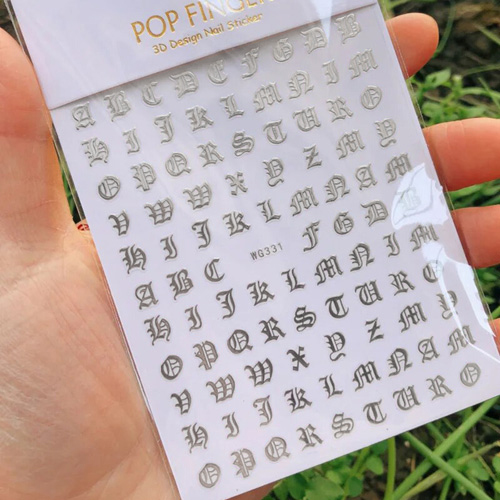 POP FINGE
3D Design Nail Sticker
A B C D E F G D B
H I J K L M N I M
O P Q R S T U R O
V W W X Y Z M Y
H I J K L M N A M
A B C WG331 F G D B
H I J K L M N I M
O P Q R S T U R O
V W W X Y Z M Y
H I J K L M N A M
O P Q R S T U R O